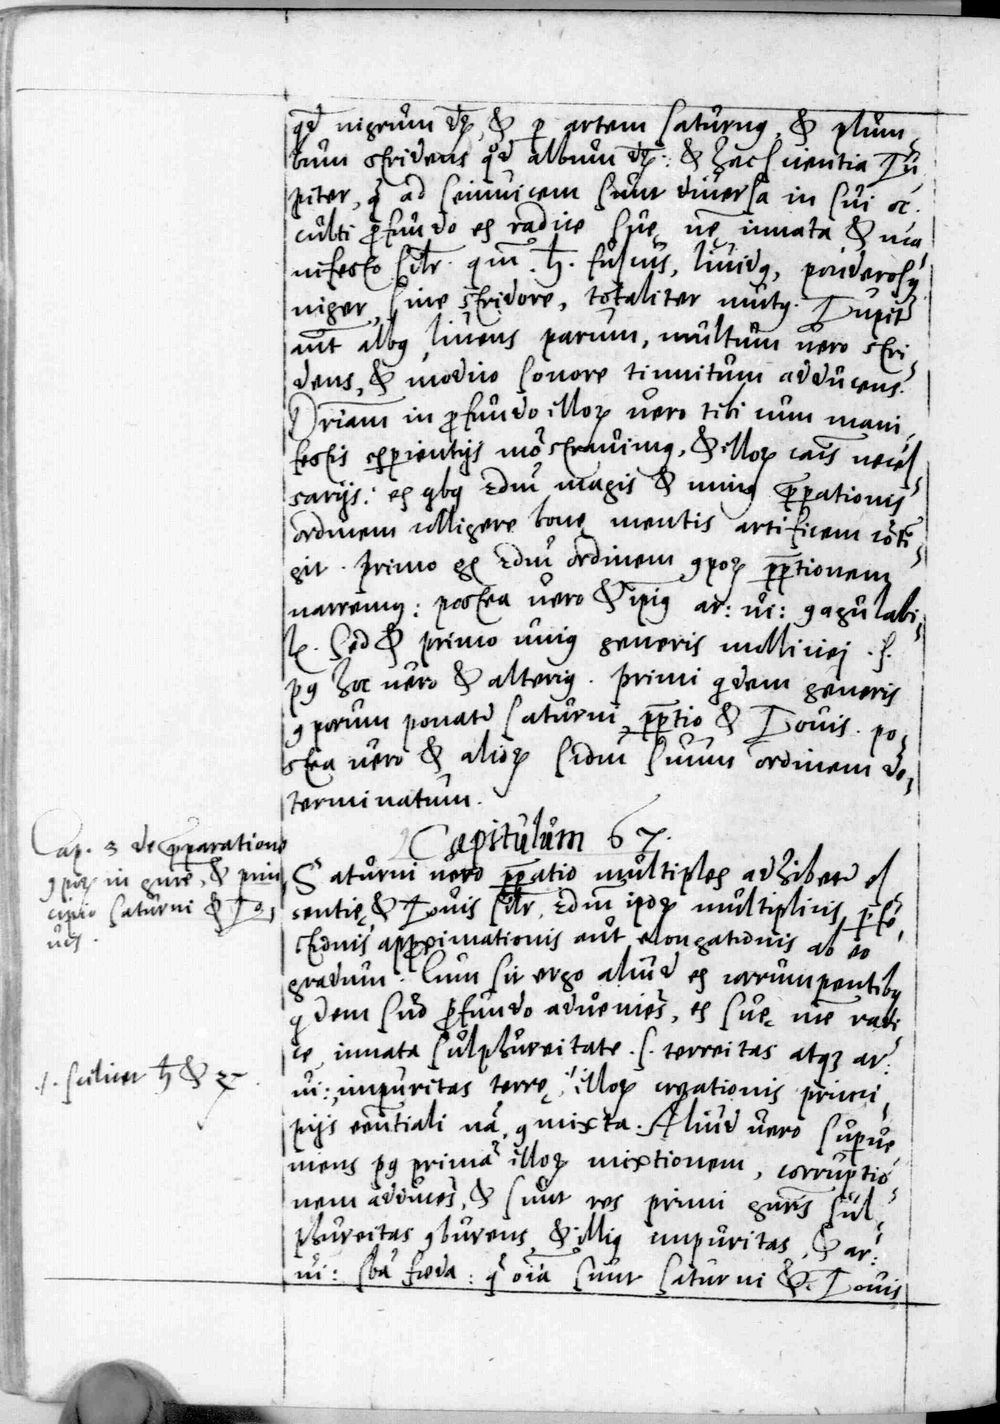 qd nigrum dr, & p artem Saturnus, & plum
bum stridens qd album dr: & hac scientia Iu
piter, q ad seinvicem sunt diversa in sui oc
culti profundo ex radice suę nę innata & ma
nifesto silr. qm .♄. fuscus, lividus, ponderosus
niger, sine stridore, totaliter mutus. Iupiter
aut albus, livens parum, multum vero stri
dens, & modico sonore tinnitum adducens.
Driam in profundo illorum vero tibi cum mani
festis experientijs monstravimus, & illorum cais neces
sarijs: ex quibus magis & minus prparationis
ordinem colligere bonę mentis artificem conti
git. Primo ordinem corporum prparationem
narremus: postea vero & ipsius ar: vi: coagulabi
lis. Sed & primo unius generis medicinę .s.
post hoc vero & alterius. Primi quidem generis
corporum ponatur Saturni prparatio & Iovis. po
stea vero & aliorum secundum suum ordinem de
terminatum.
Capitulum 67.
Cap. 3 de prparatione
corporum in genere, & prin
cipio Saturni & Io
vis.
Saturni vero prparatio multiplex adhibetur es
sentię & Iovis silr, secundum ipsorum multiplicis perfe
ctionis approximationis aut elongationis ab eo
gradum. Cum sit ergo aliud ex corrumpentibus
quidem suo profundo adveniens, ex suę nae radi
ce, innata sulphureitate .s. terreitas atque ar:
vi: impuritas terrę, illorum creationis princi
pijs eentiali na, comixta. Aliud vero superve
niens post primam illorum mixtionem, corruptio
nem adducens, & sunt res primi generis sul
phureitas comburens, & illius impuritas, & ar:
vi: sba foeda: q oia sunt Saturni & Iovis
./. scilicet ♄ & ♃.